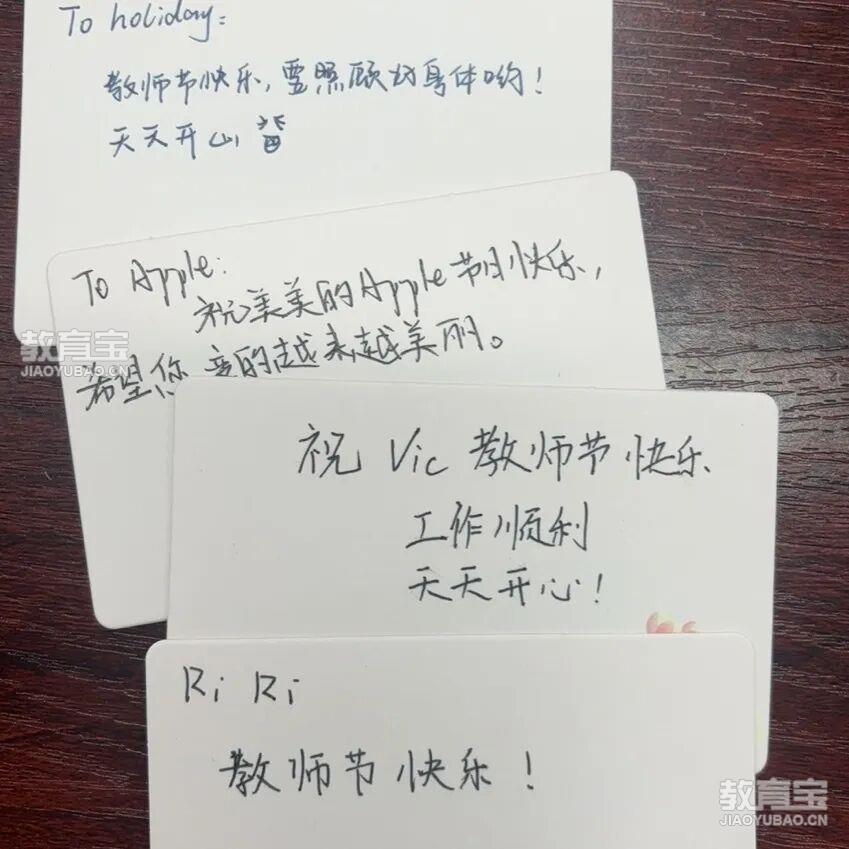 To holiday:
教师节快乐，要照顾好身体哟！
天天开心
To Apple:
祝美美的Apple节日快乐，
希望您变的越来越美丽。
祝 Vic 教师节快乐
工作顺利
天天开心！
Ri Ri
教师节快乐！
教育宝
JIAOYUBAO.CN
教育宝
JIAOYUBAO.CN